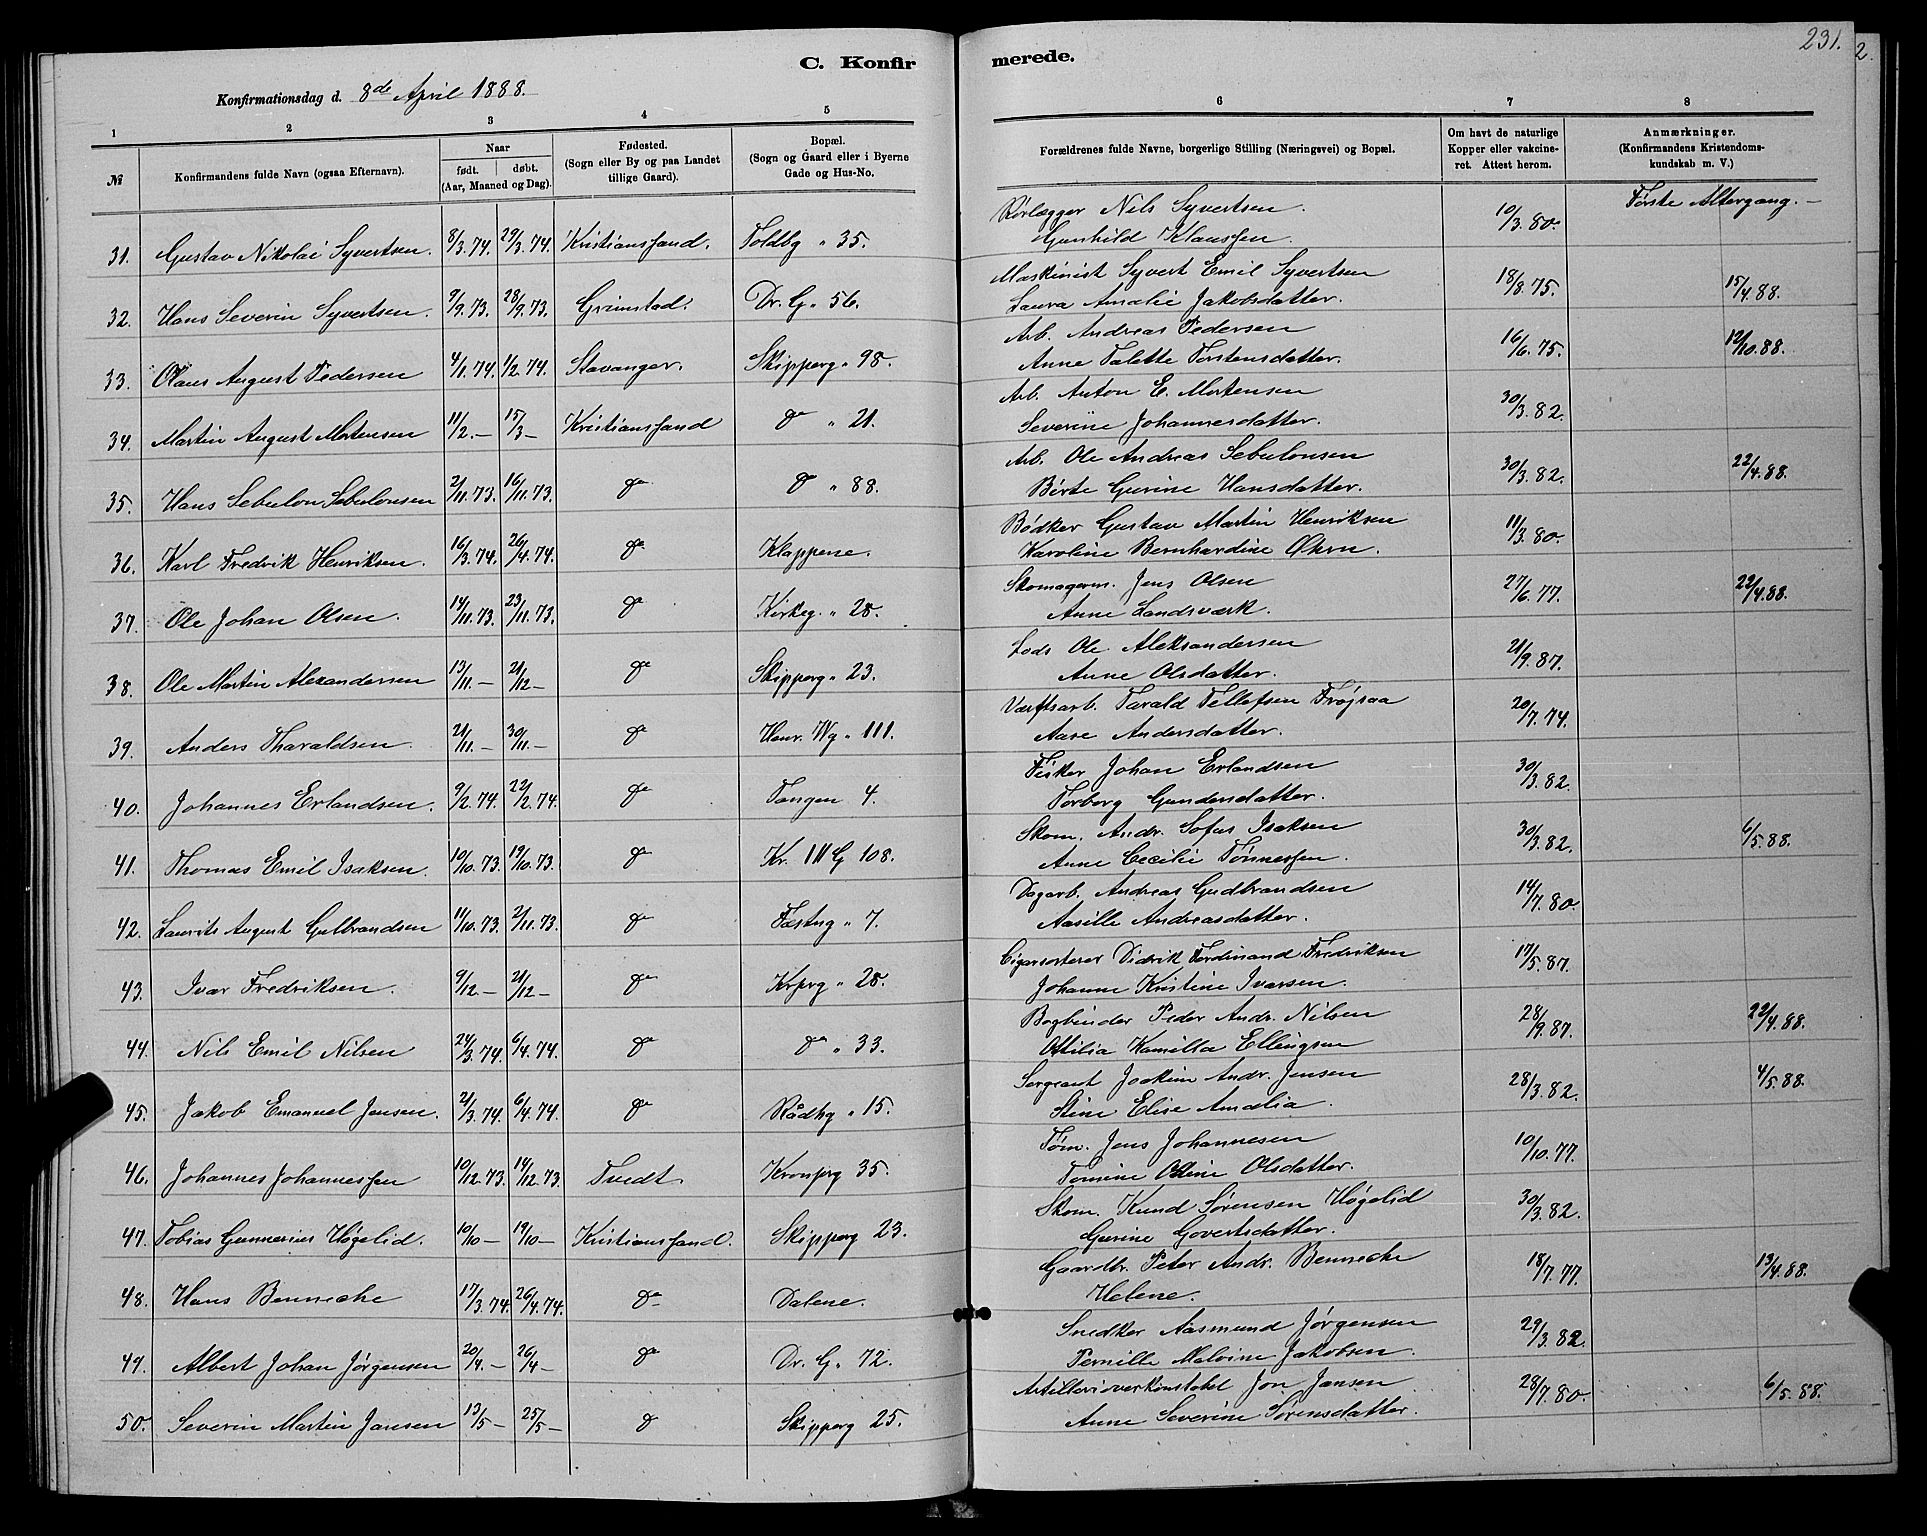 231.
2.
C. Konfirmerede.
Konfirmationsdag d. 8de April 1888.
1 2 3 4 5 6 7 8
№
Konfirmandens fulde Navn (ogsaa Efternavn).
Naar
født. døbt.
(Aar, Maaned og Dag).
Fødested.
(Sogn eller By og paa Landet
tillige Gaard).
Bopæl.
(Sogn og Gaard eller i Byerne
Gade og Hus-No.
Forældrenes fulde Navne, borgerlige Stilling (Næringsvei) og Bopæl.
Om havt de naturlige
Kopper eller vakcine-
ret. Attest herom.
Anmærkninger.
(Konfirmandens Kristendoms-
kundskab m. V.)
Første Altergang. –
Rørlægger Nils Syvertsen.
31. Gustav Nikolai Syvertsen. 8/3.74. 29/3.74. Kristianssand. Toldbg „ 35. Gunhild Klaussen. 10/3.80.
Maskinist Syvert Emil Syvertsen
32. Hans Severin Syvertsen. 9/9.73. 28/9.73. Grimstad. Dr. G. „ 56. Laura Amalie Jakobsdatter. 18/8.75. 15/4.88.
Arb. Andreas Pedersen
33. Olaus August Pedersen 4/1.74. 1/2.74. Stavanger. Skipperg „ 98. Anne Talette Torstensdatter. 16/6.75. 12/10.88.
Arb. Anton E. Mortensen
34. Martin August Mortensen 11/2.– 15/3– Kristianssand do „ 21. Severine Johannesdatter. 30/3.82.
Arb. Ole Andreas Sebulonsen
35. Hans Sebulon Sebulonsen 2/11.73. 16/11.73. do do „ 88. Børte Gurine Hansdatter. 30/3.82. 22/4.88.
Bødker Gustav Martin Henriksen
36. Karl Fredrik Henriksen. 16/3.74. 26/4.74. do Klappene. Karoline Bernhardine Økern. 11/3.80.
Skomagerm. Jens Olsen
37. Ole Johan Olsen. 14/11.73. 23/11.73. do Kirkeg. „ 28. Anne Landsværk. 27/6.77. 22/4.88.
Lods Ole Aleksandersen
38. Ole Martin Alexandersen 13/11.– 21/12– do Skipperg „ 23. Anne Olsdatter. 21/9.87.
Værftsarb. Tarald Tellefsen Frøjsaa
39. Anders Tharaldsen. 21/11.– 30/11.– do Henr. Wg „ 111. Aase Andersdatter. 20/7.74.
Fisker Johan Erlandsen
40. Johannes Erlandsen. 9/2.74. 22/2.74. do Tangen 4. Torborg Gundersdatter. 30/3.82.
Skom. Andr. Sofus Isaksen
41. Thomas Emil Isaksen. 10/10.73. 19/10.73. do Kr. IV G 108. Anne Cecilie Tønnessen. 30/3.82. 6/5.88.
Dagarb. Andreas Gudbrandsen
42. Laurits August Gulbrandsen 11/10.73. 2/11.73. do Fæstng „ 7. Aasille Andreasdatter. 14/7.80.
Cigarsorterer Didrik Ferdinand Fredriksen
43. Ivar Fredriksen. 9/12– 21/12– do Krprg „ 28. Johanne Kristine Ivarsen. 17/5.87.
Bogbinder Peder Andr. Nilsen
44. Nils Emil Nilsen 24/3.74. 6/4.74. do do „ 33. Ottilia Kamilla Ellingsen 28/9.87. 22/4.88.
Sergeant Joakim Andr. Jensen
45. Jakob Emanuel Jensen. 21/3.74. 6/4.74. do Rådhg „ 15. Stine Elise Amalia. 28/3.82. 4/5.88.
Tøm. Jens Johannesen
46. Johannes Johannessen 10/12.73. 14/12.73. Tvedt. Kronprg 35. Tomine Odine Olsdatter. 10/10.77.
Skom. Knud Sørensen Høgelid
47. Tobias Gunnerius Høgelid. 10/10– 19/10– Kristianssand. Skipperg 23. Gurine Govertsdatter. 30/3.82.
Gaardbr. Peter Andr. Benneche
48. Hans Benneche 17/3.74. 26/4.74. do Dalene. Helene. 18/7.77. 13/4.88.
Snedker Aasmund Jørgensen
49. Albert Johan Jørgensen 20/4.– 26/4– do Dr. G. „ 72. Pernille Malvine Jakobsen. 29/3.82.
Artillerioverkonstabel Jon Jansen
50. Severin Martin Jansen 13/5– 25/5– do Skipperg 25. Anne Severine Sørensdatter. 28/7.80. 6/5.88.